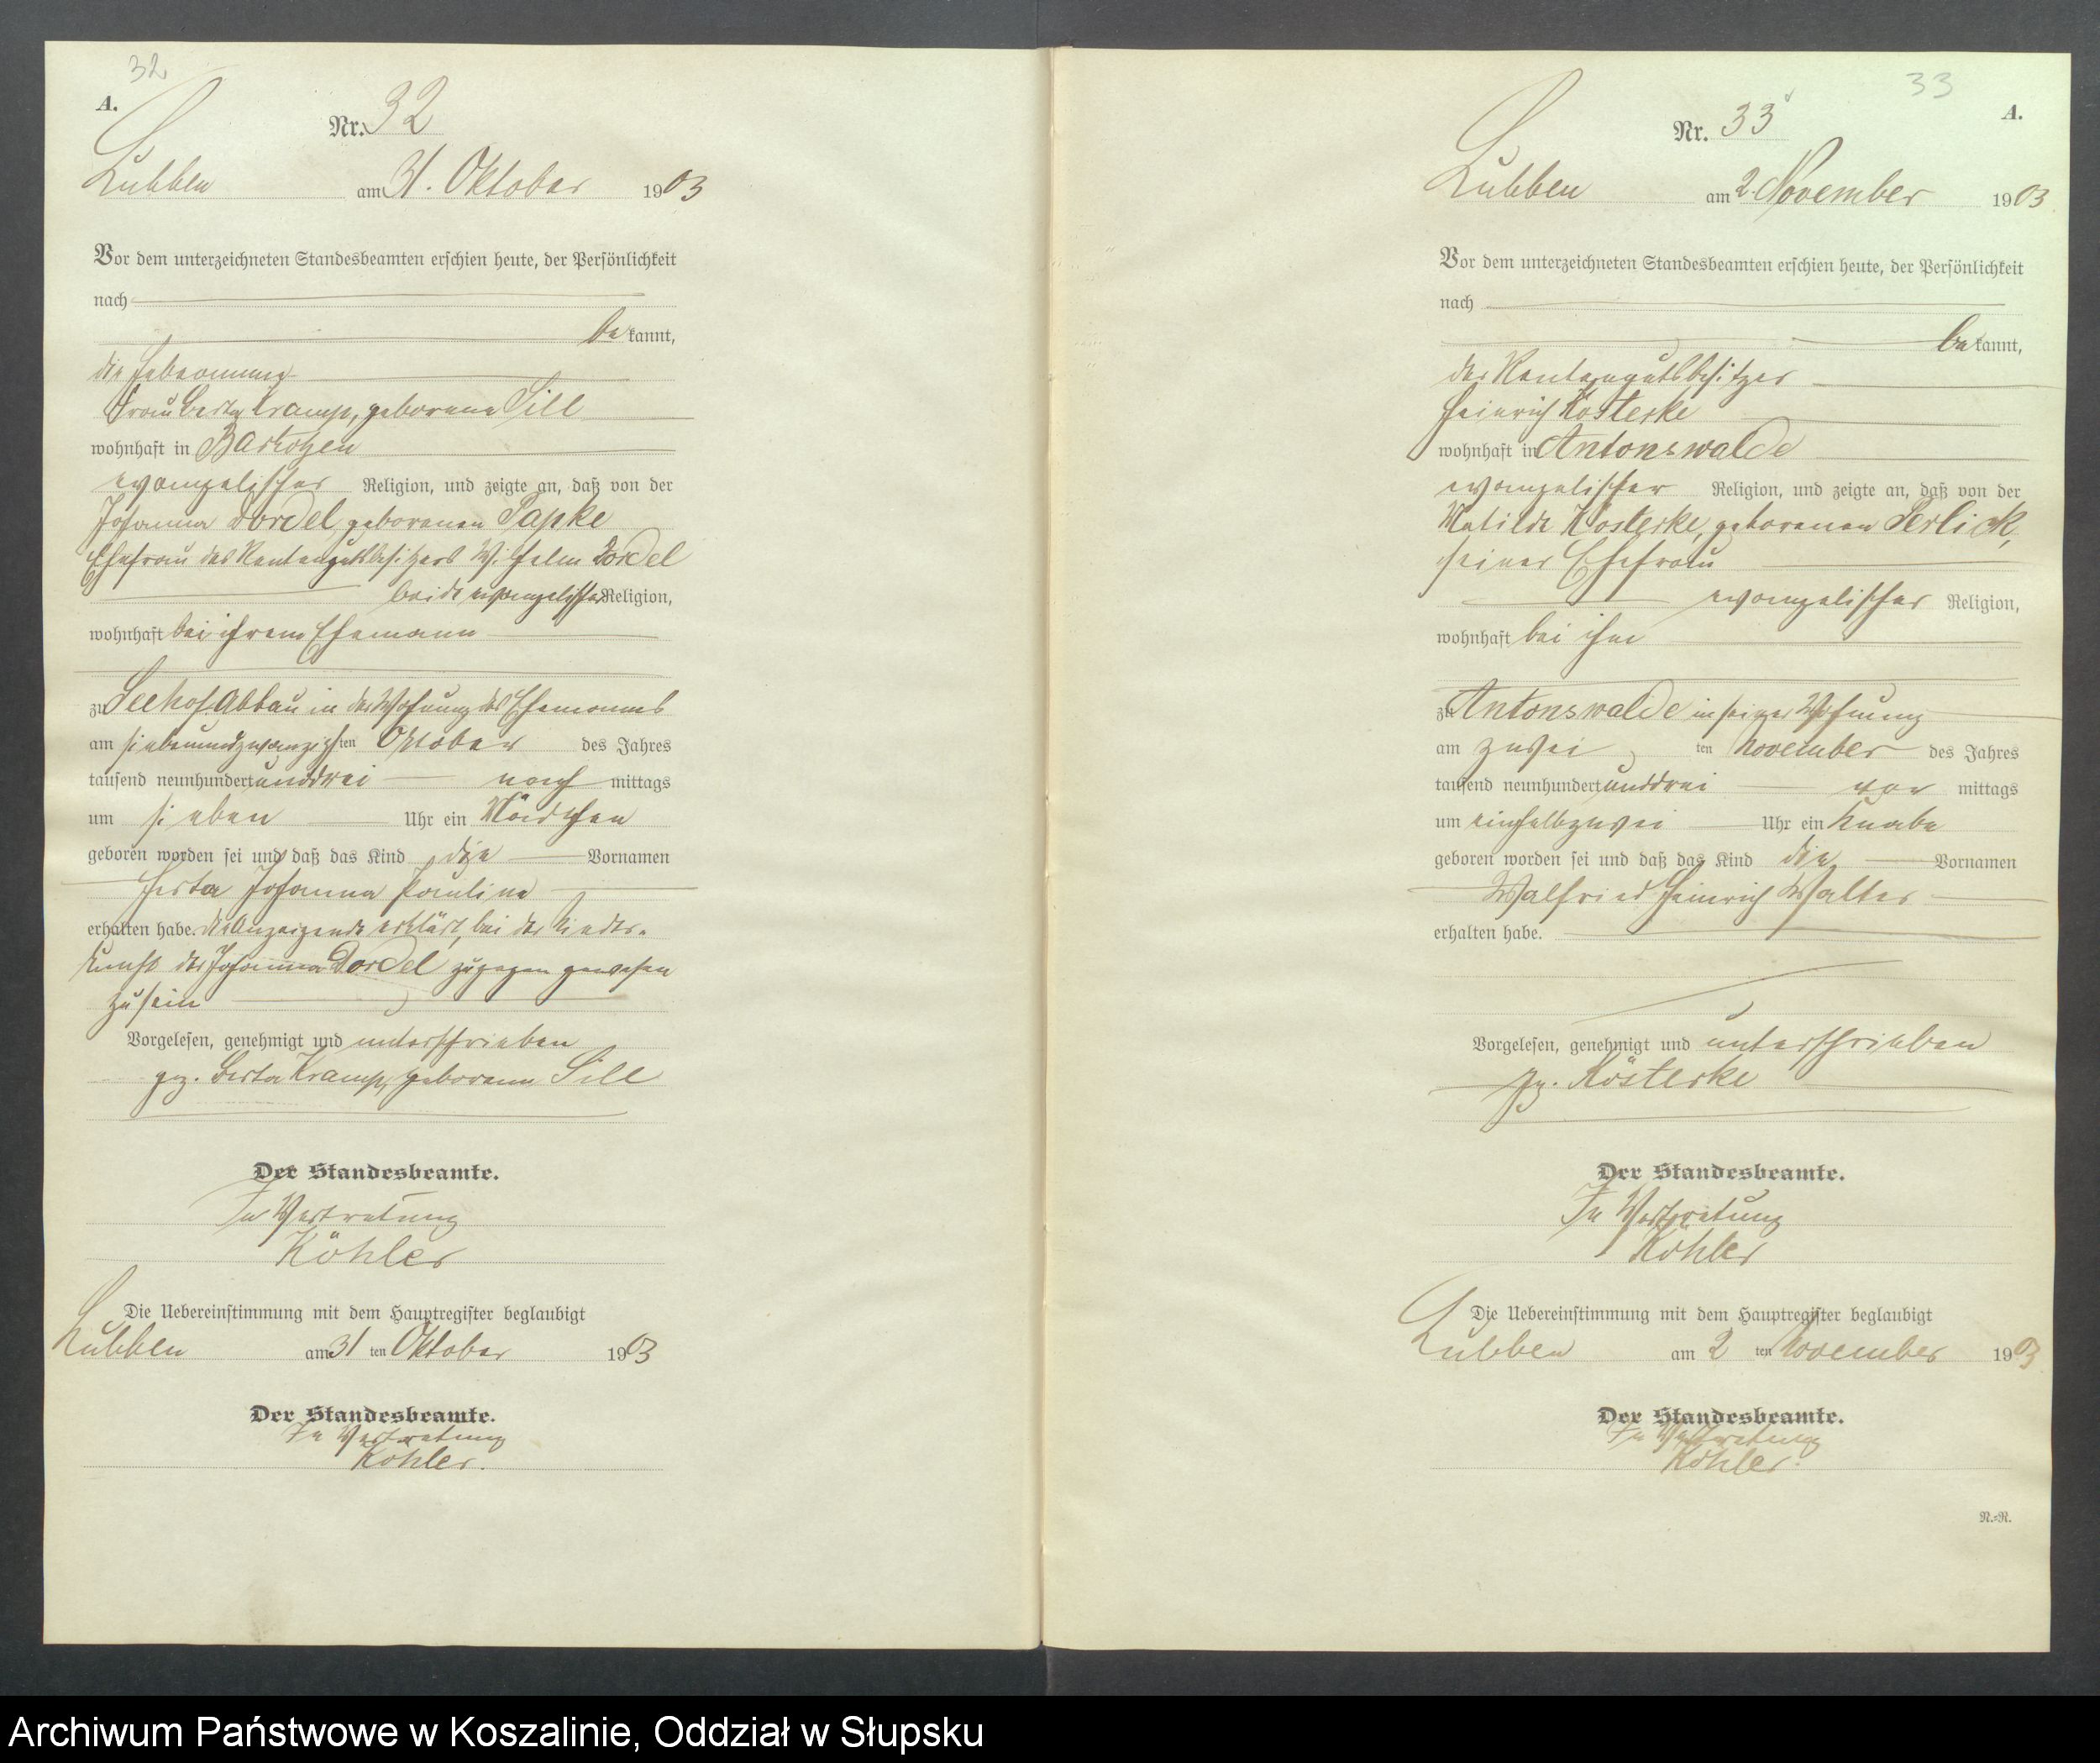 32
A.
Nr. 32
Lubben am 31. Oktober 1903
Vor dem unterzeichneten Standesbeamten erschien heute, der Persönlichkeit
nach
be kannt,
die Hebeamme
Frau Berta Kramp, geborene Sill
wohnhaft in Bartoyen
evangelischer Religion, und zeigte an, daß von der
Johanna Dordel geborenen Papke
Ehefrau des Rentengutsbesitzers Wilhelm Dordel
beide evangelischer Religion,
wohnhaft bei ihrem Ehemann
zu Seehof Abbau in der Wohnung des Ehemanns
am siebenundzwanzigsten Oktober des Jahres
tausend neunhundert unddrei nach mittags
um sieben Uhr ein Mädchen
geboren worden sei und daß das Kind die Vornamen
Herta Johanna Pauline
erhalten habe. Die Anzeigende erklärt, bei der Nieder-
kunft der Johanna Dordel zugegen gewesen
zu sein
Vorgelesen, genehmigt und unterschrieben
gez. Berta Kramp, geborene Sill
Der Standesbeamte.
In Vertretung
Köhler
Die Uebereinstimmung mit dem Hauptregister beglaubigt
Lubben am 31 ten Oktober 1903
Der Standesbeamte.
In Vertretung
Köhler.
33
A.
Nr. 33
Lubben am 2. November 1903
Vor dem unterzeichneten Standesbeamten erschien heute, der Persönlichkeit
nach
be kannt,
der Rentengutsbesitzer
Heinrich Kösterke
wohnhaft in Antonswalde
evangelischer Religion, und zeigte an, daß von der
Matilde Kösterke, geborenen Serlick,
seiner Ehefrau
evangelischer Religion,
wohnhaft bei ihm
zu Antonswalde in seiner Wohnung
am zwei ten November des Jahres
tausend neunhundert unddrei vor mittags
um einhalbzwei Uhr ein Knabe
geboren worden sei und daß das Kind die Vornamen
Walfried Heinrich Walter
erhalten habe.
Vorgelesen, genehmigt und unterschrieben
gez. Kösterke
Der Standesbeamte.
In Vertretung
Köhler
Die Uebereinstimmung mit dem Hauptregister beglaubigt
Lubben am 2 ten November 1903
Der Standesbeamte.
In Vertretung
Köhler.
N.=R.
Archiwum Państwowe w Koszalinie, Oddział w Słupsku